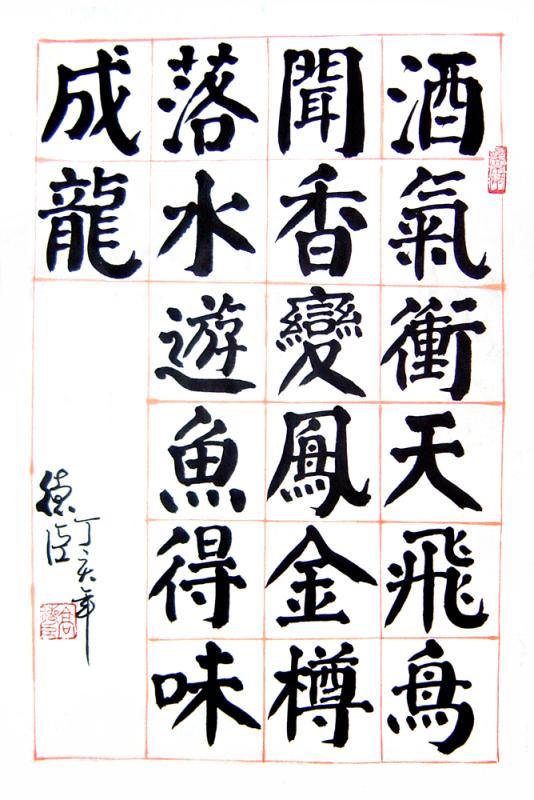 酒氣衝天飛鳥
聞香變鳳金樽
落水遊魚得味
成龍
丁亥年
德臣